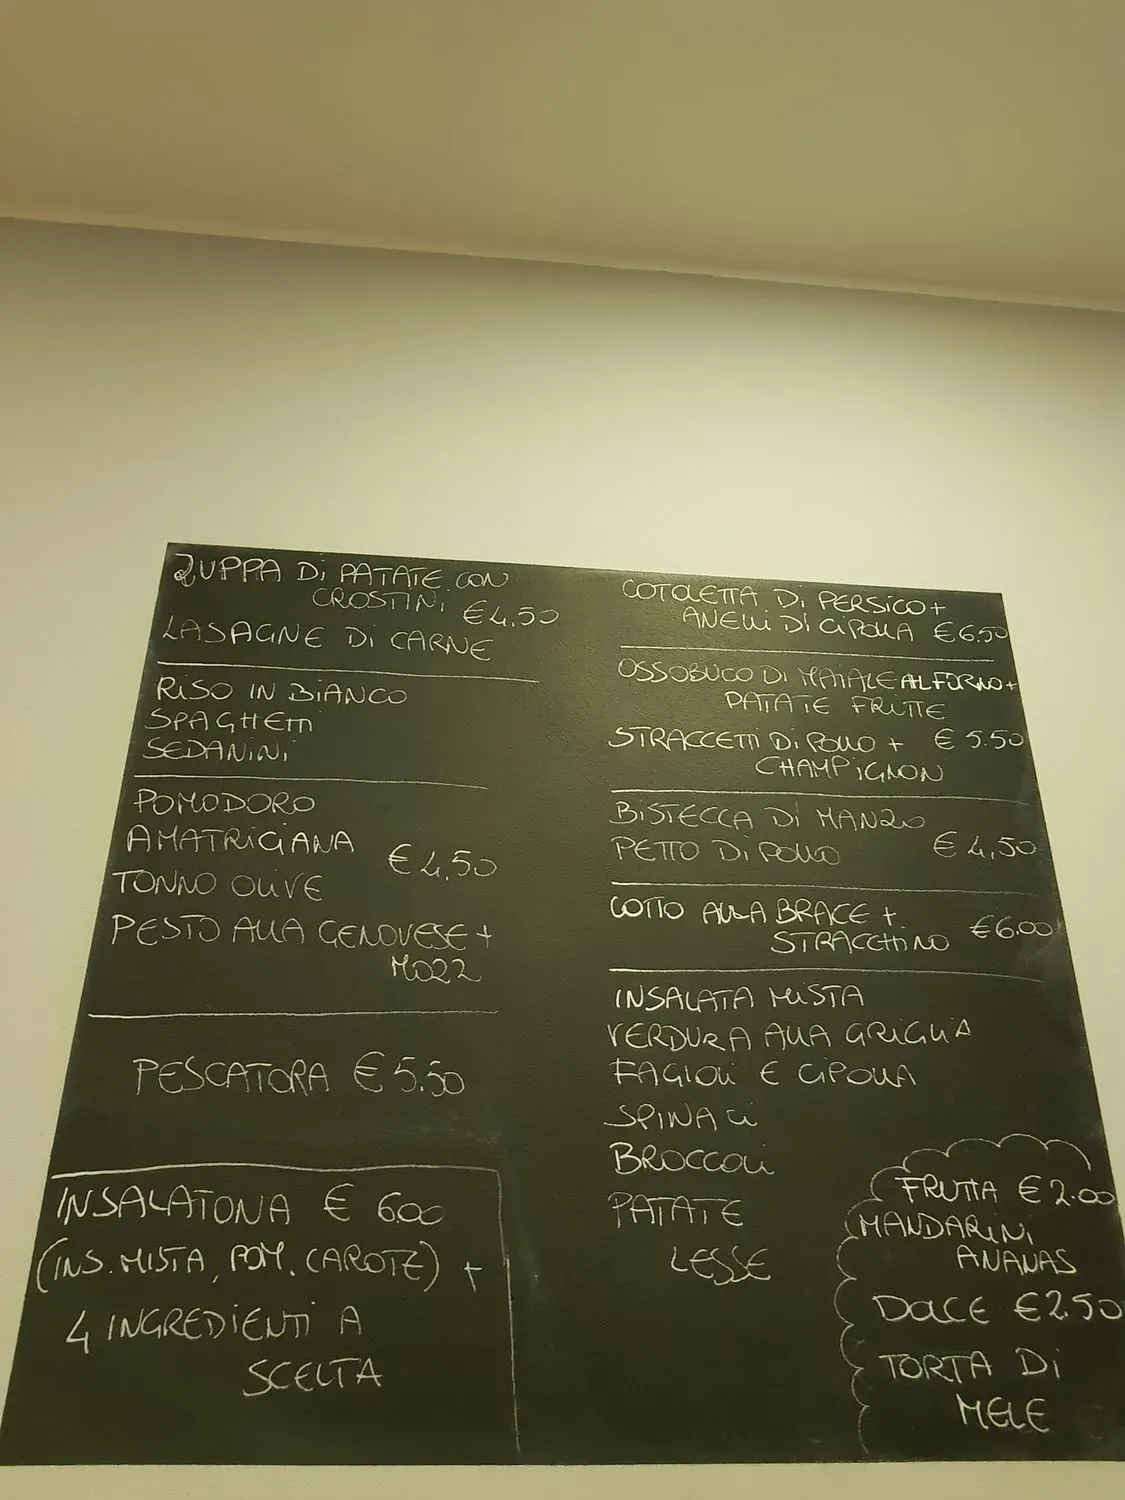 ZUPPA DI PATATE CON
CROSTINI €4.50
LASAGNE DI CARNE
RISO IN BIANCO
SPAGHETTI
SEDANINI
POMODORO
AMATRICIANA
€4,50
TONNO OLIVE
PESTO ALLA GENOVESE +
MOZZ
PESCATORA €5.50
INSALATONA € 6.00
(INS. MISTA, POM. CAROTE) +
4 INGREDIENTI A
SCELTA
COTOLETTA DI PERSICO +
ANELLI DI CIPOLLA €6.50
OSSOBUCO DI MAIALE AL FORNO +
PATATE FRITTE
STRACCETTI DI POLLO + € 5.50
CHAMPIGNON
BISTECCA DI MANZO
PETTO DI POLLO € 4,50
COTTO ALLA BRACE +
STRACCHINO €6.00
INSALATA MISTA
VERDURA ALLA GRIGLIA
FAGIOLI E CIPOLLA
SPINACI
BROCCOLI
PATATE
LESSE
FRUTTA €2.00
MANDARINI
ANANAS
DOLCE €2.50
TORTA DI
MELE